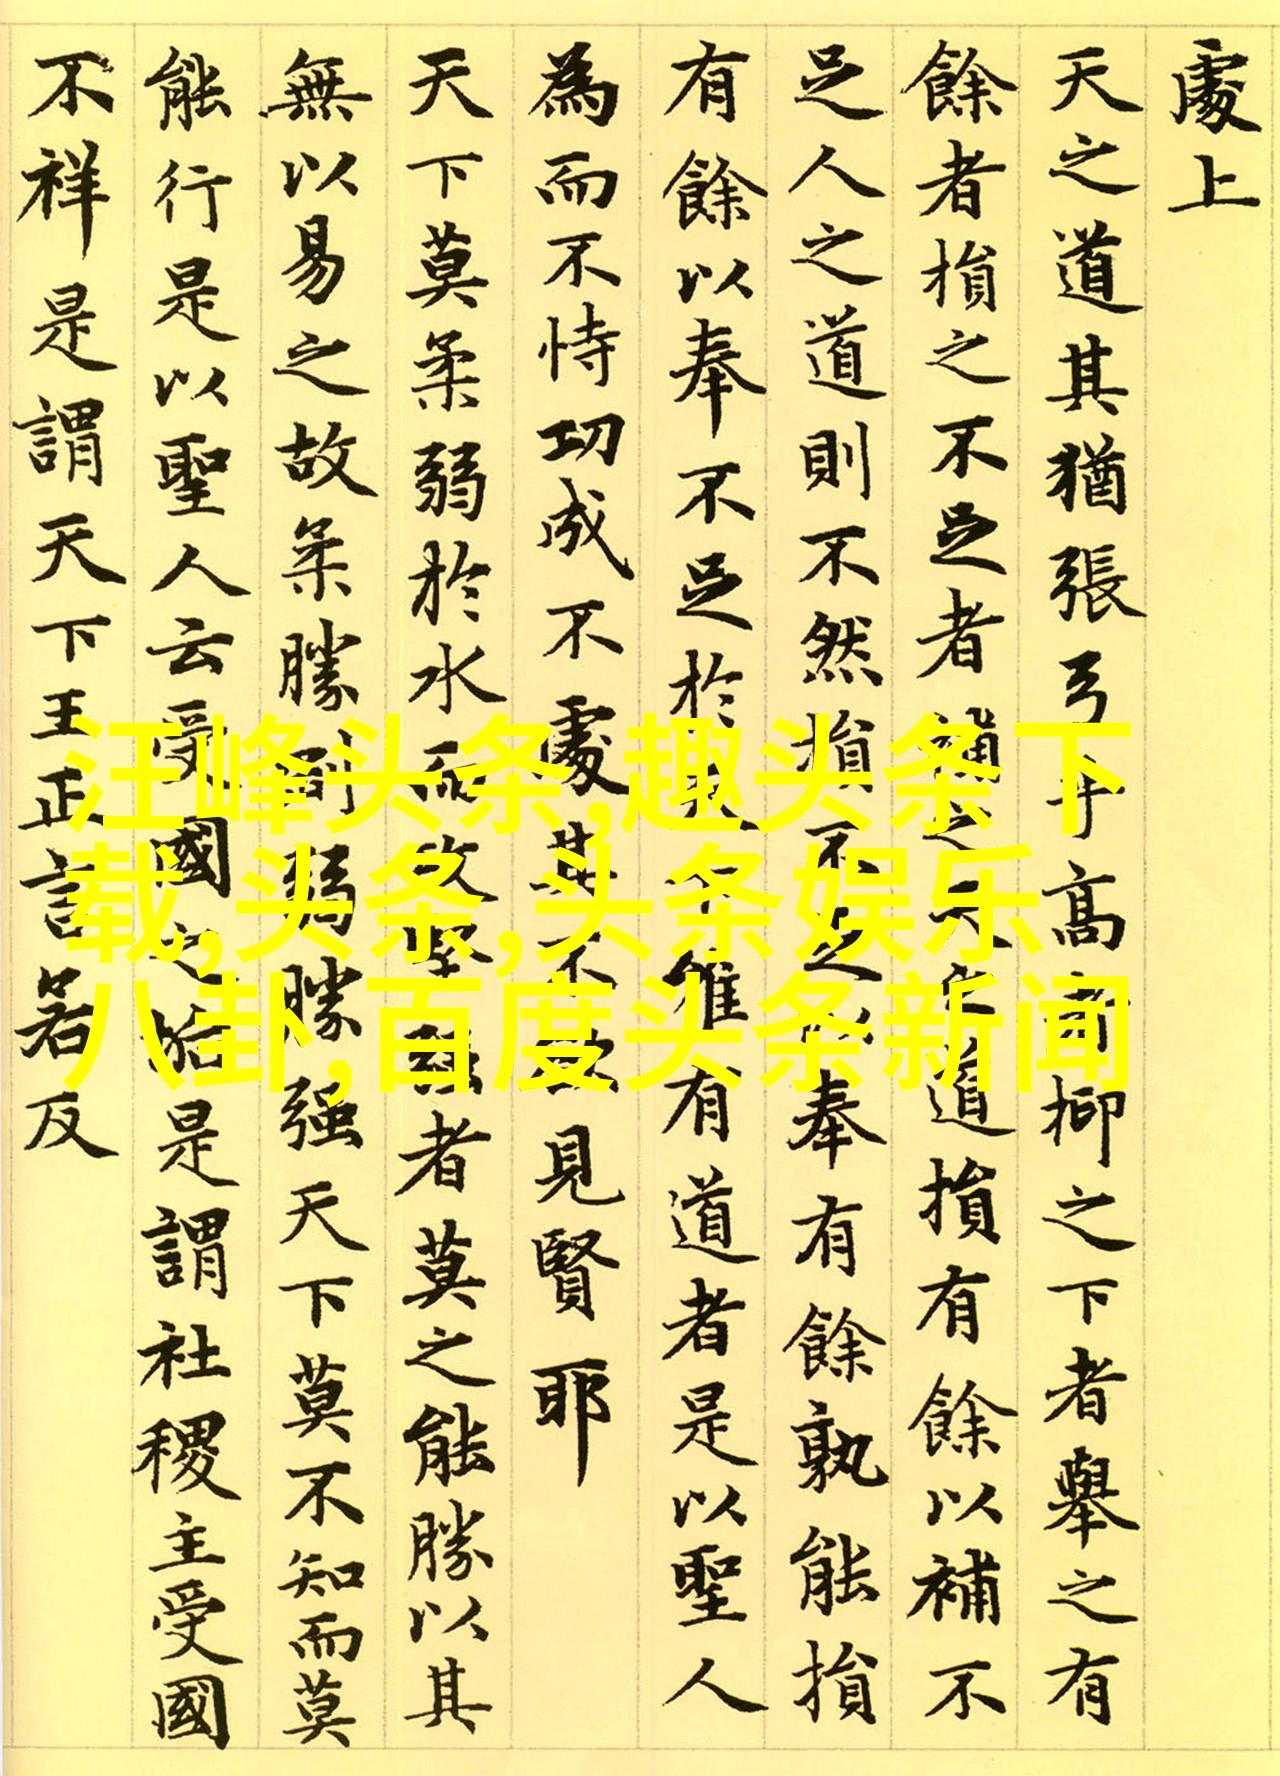 處上
天之道其猶張弓乎高者抑之下者舉之有
餘者損之不足者補之天之道損有餘以補不
足人之道則不然損不足以奉有餘孰能損
有餘以奉不足於天下唯有道者是以聖人
為而不恃功成不處其不欲見賢耶
天下莫柔弱於水而攻堅强者莫之能勝以其
無以易之故柔勝剛弱勝强天下莫不知而莫
能行是以聖人云受國之垢是謂社稷主受國
不祥是謂天下王正言若反
汪峰头条,趣头条下
载,头条,头条娱乐
八卦,百度头条新闻